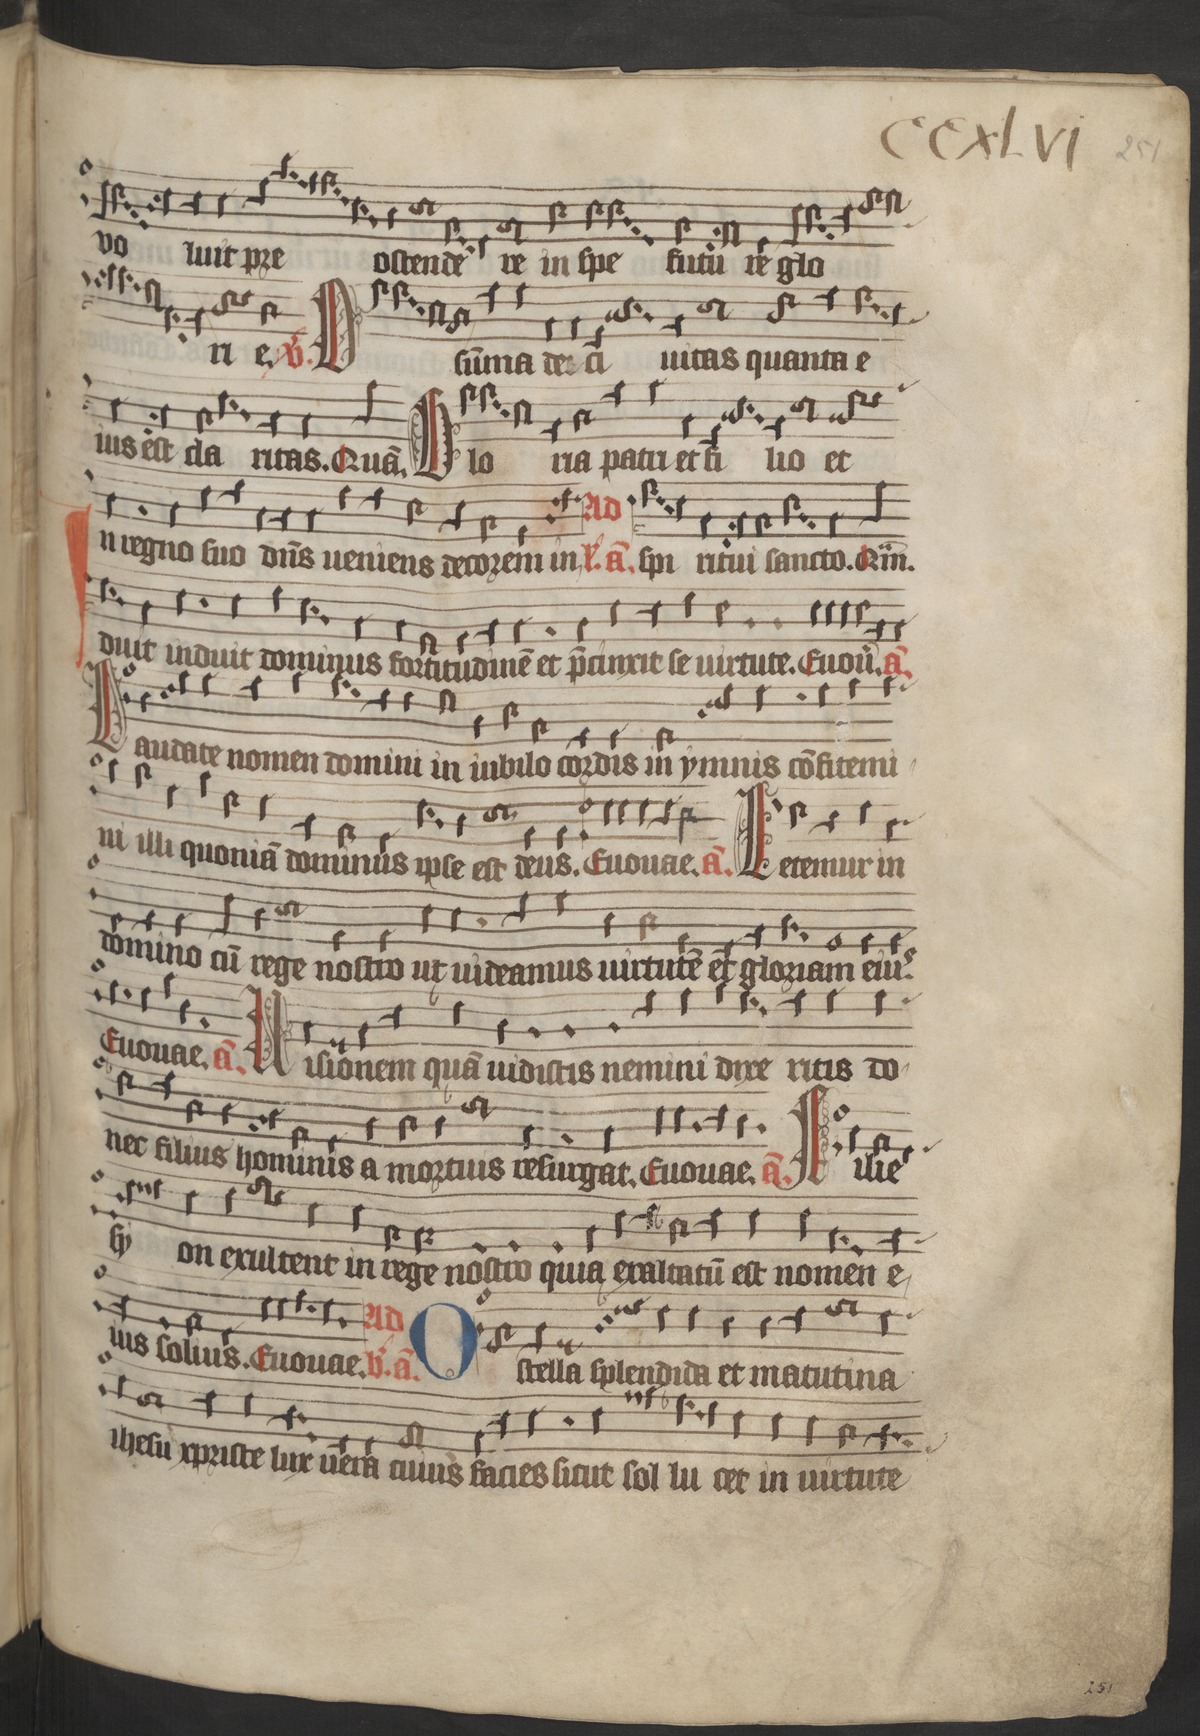 CCXLVI 251
vo luit pre ostendē re in spe futū re glo
ri e. V. O summa dei ci vitas quanta e
ius est cla ritas. Quā. Glo ria patri et fi lio et
In regno suo dn̄s veniens decorem in L. ā. spi ritui sancto. Qm̄.
duit induit dominus fortitudinē et p̄cinxit se virtute. Euou. ā.
Laudate nomen domini in iubilo cordis in ymnis cōfitemi
ni illi quoniā dominus ipse est deus. Euouae. ā. Letemur in
domino cū rege nostro ut videamus virtutē et gloriam eiuˢ
Euouae. ā. Visionem quā vidistis nemini dixe ritis do
nec filius hominis a mortuis resurgat. Euouae. ā. Filie
sy on exultent in rege nostro quia exaltatū est nomen e
ius solius. Euouae. Ad V. ā. O stella splendida et matutina
ihesu xpriste lux vera cuius facies sicut sol lu cet in virtute
251